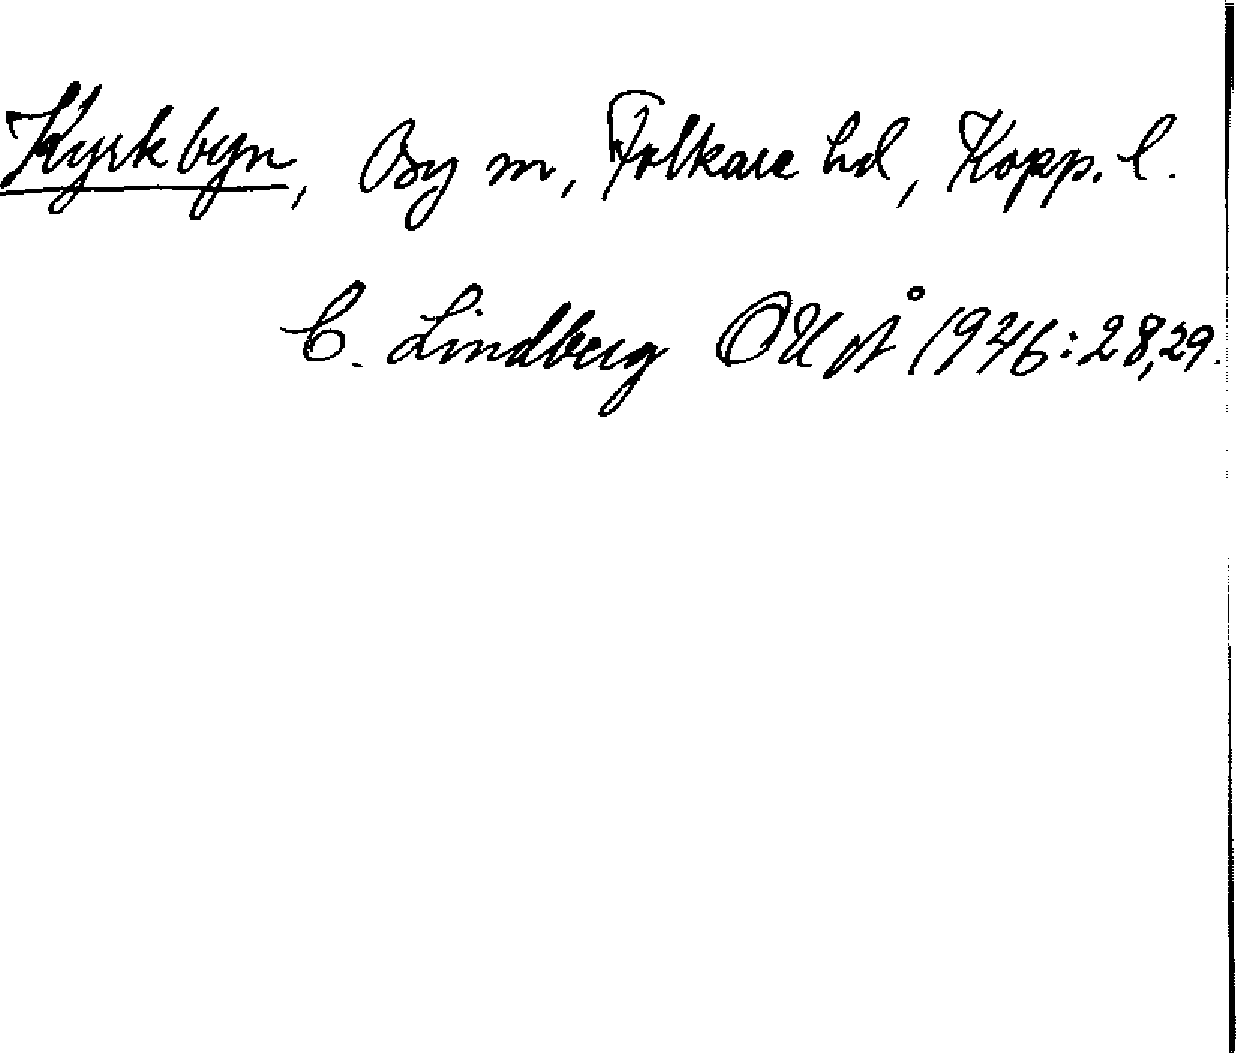 Kyrkbyn, By sn, Folkare hd, Kopp. l.
C. Lindberg OUÅ 1946:28,29.